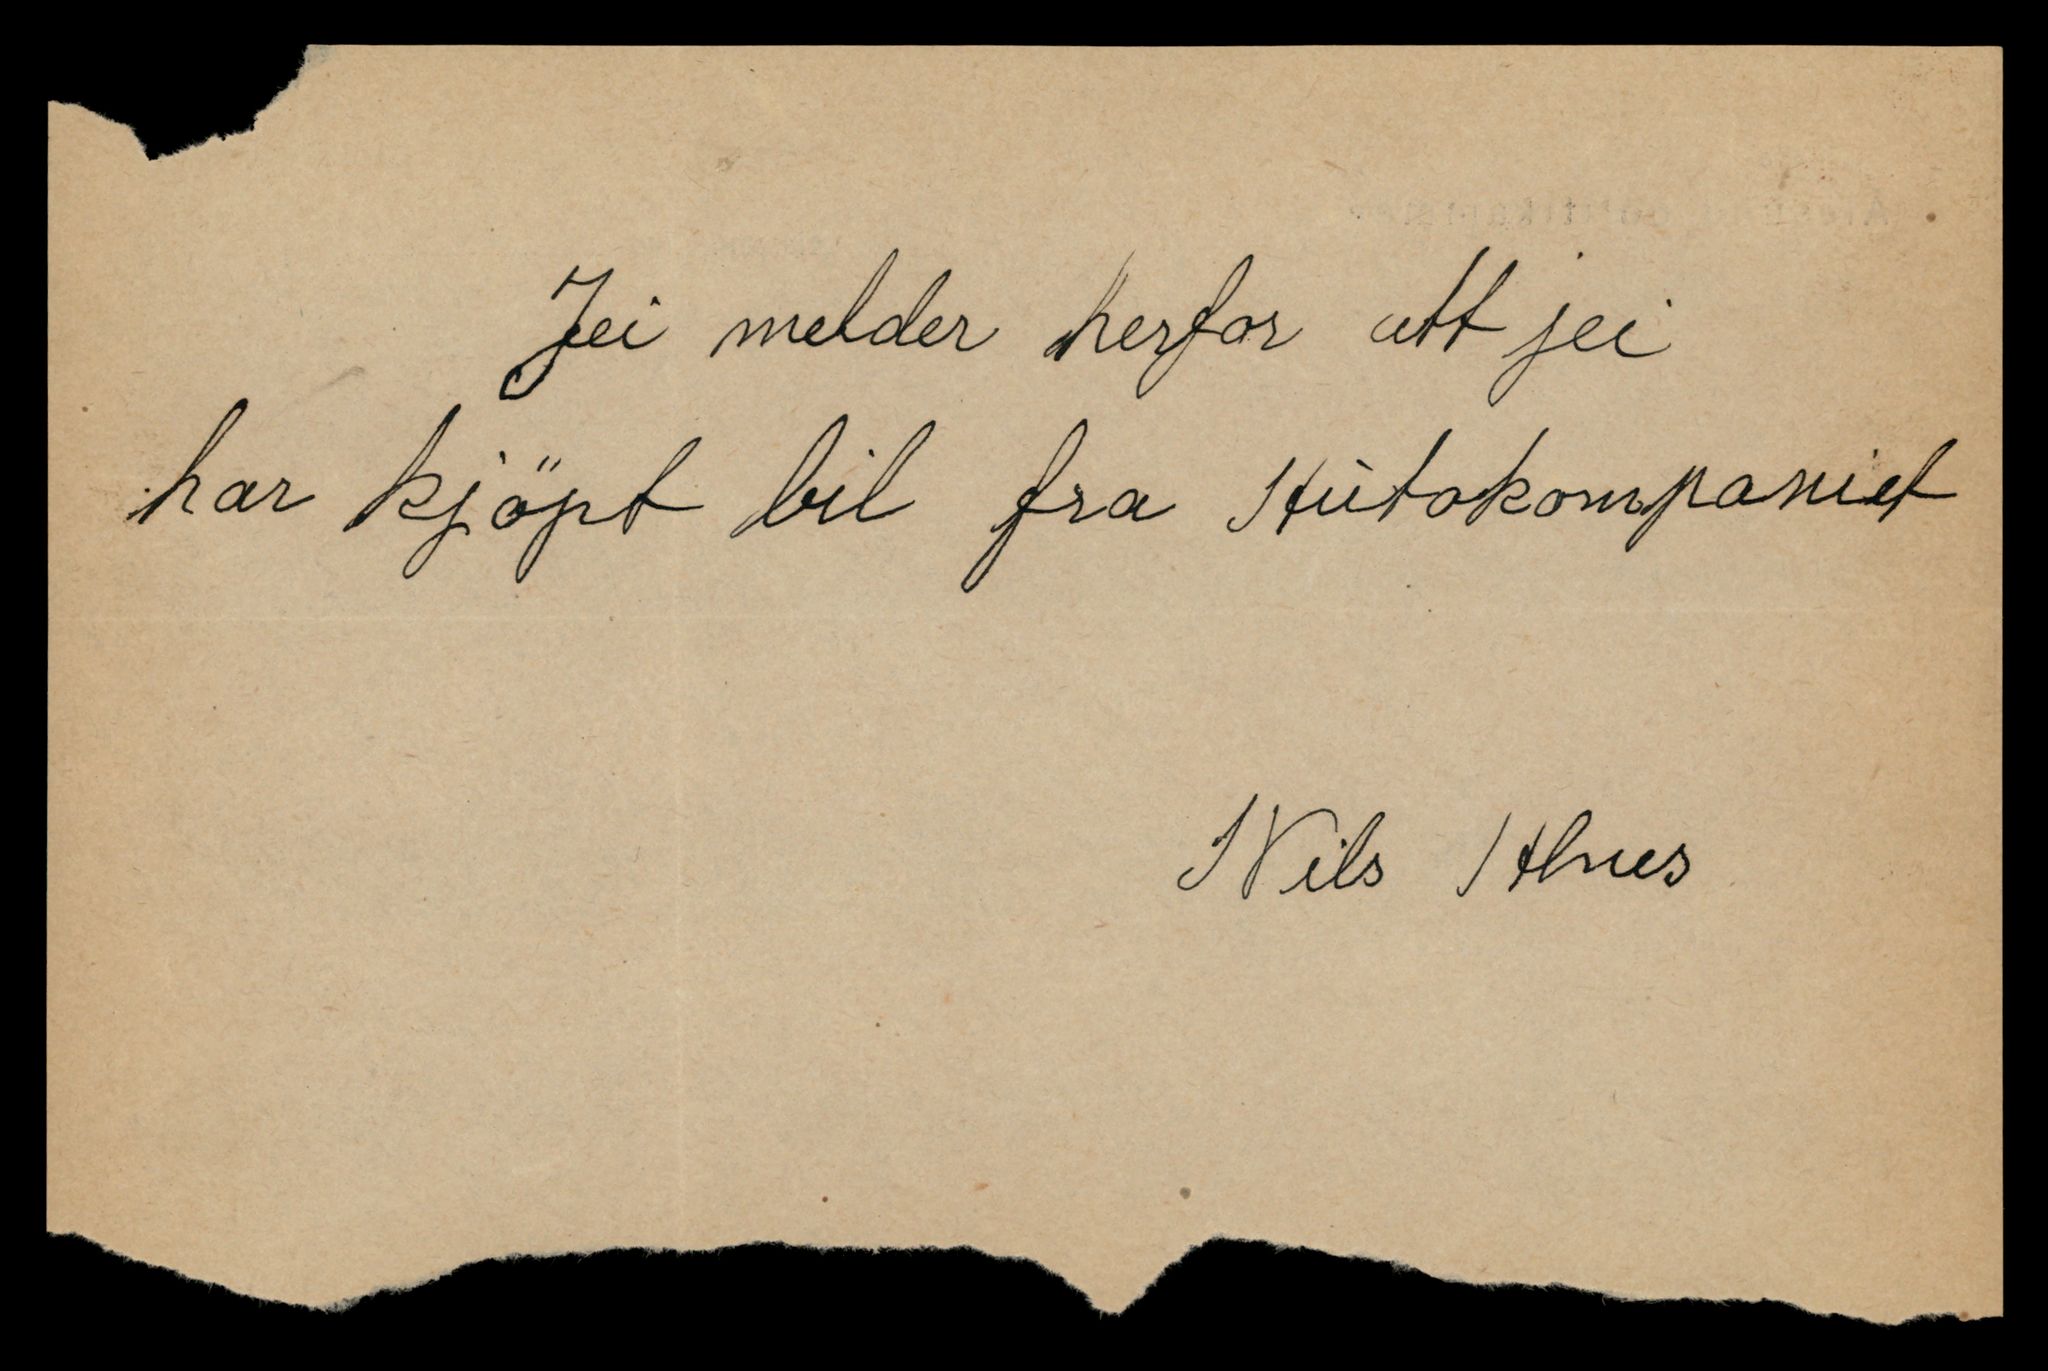 Jei melder herfor att jei
har kjöpt bil fra Autokompaniet
Nils Alnes